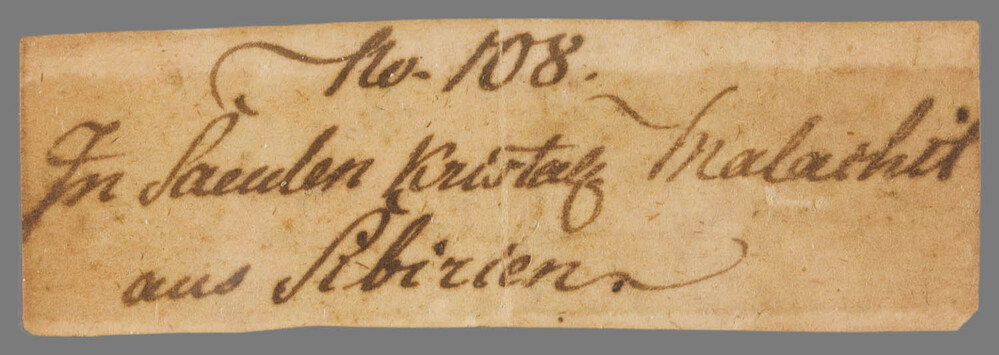 No. 108.
In Saeulen kristalz Malachit
aus Sibirien.